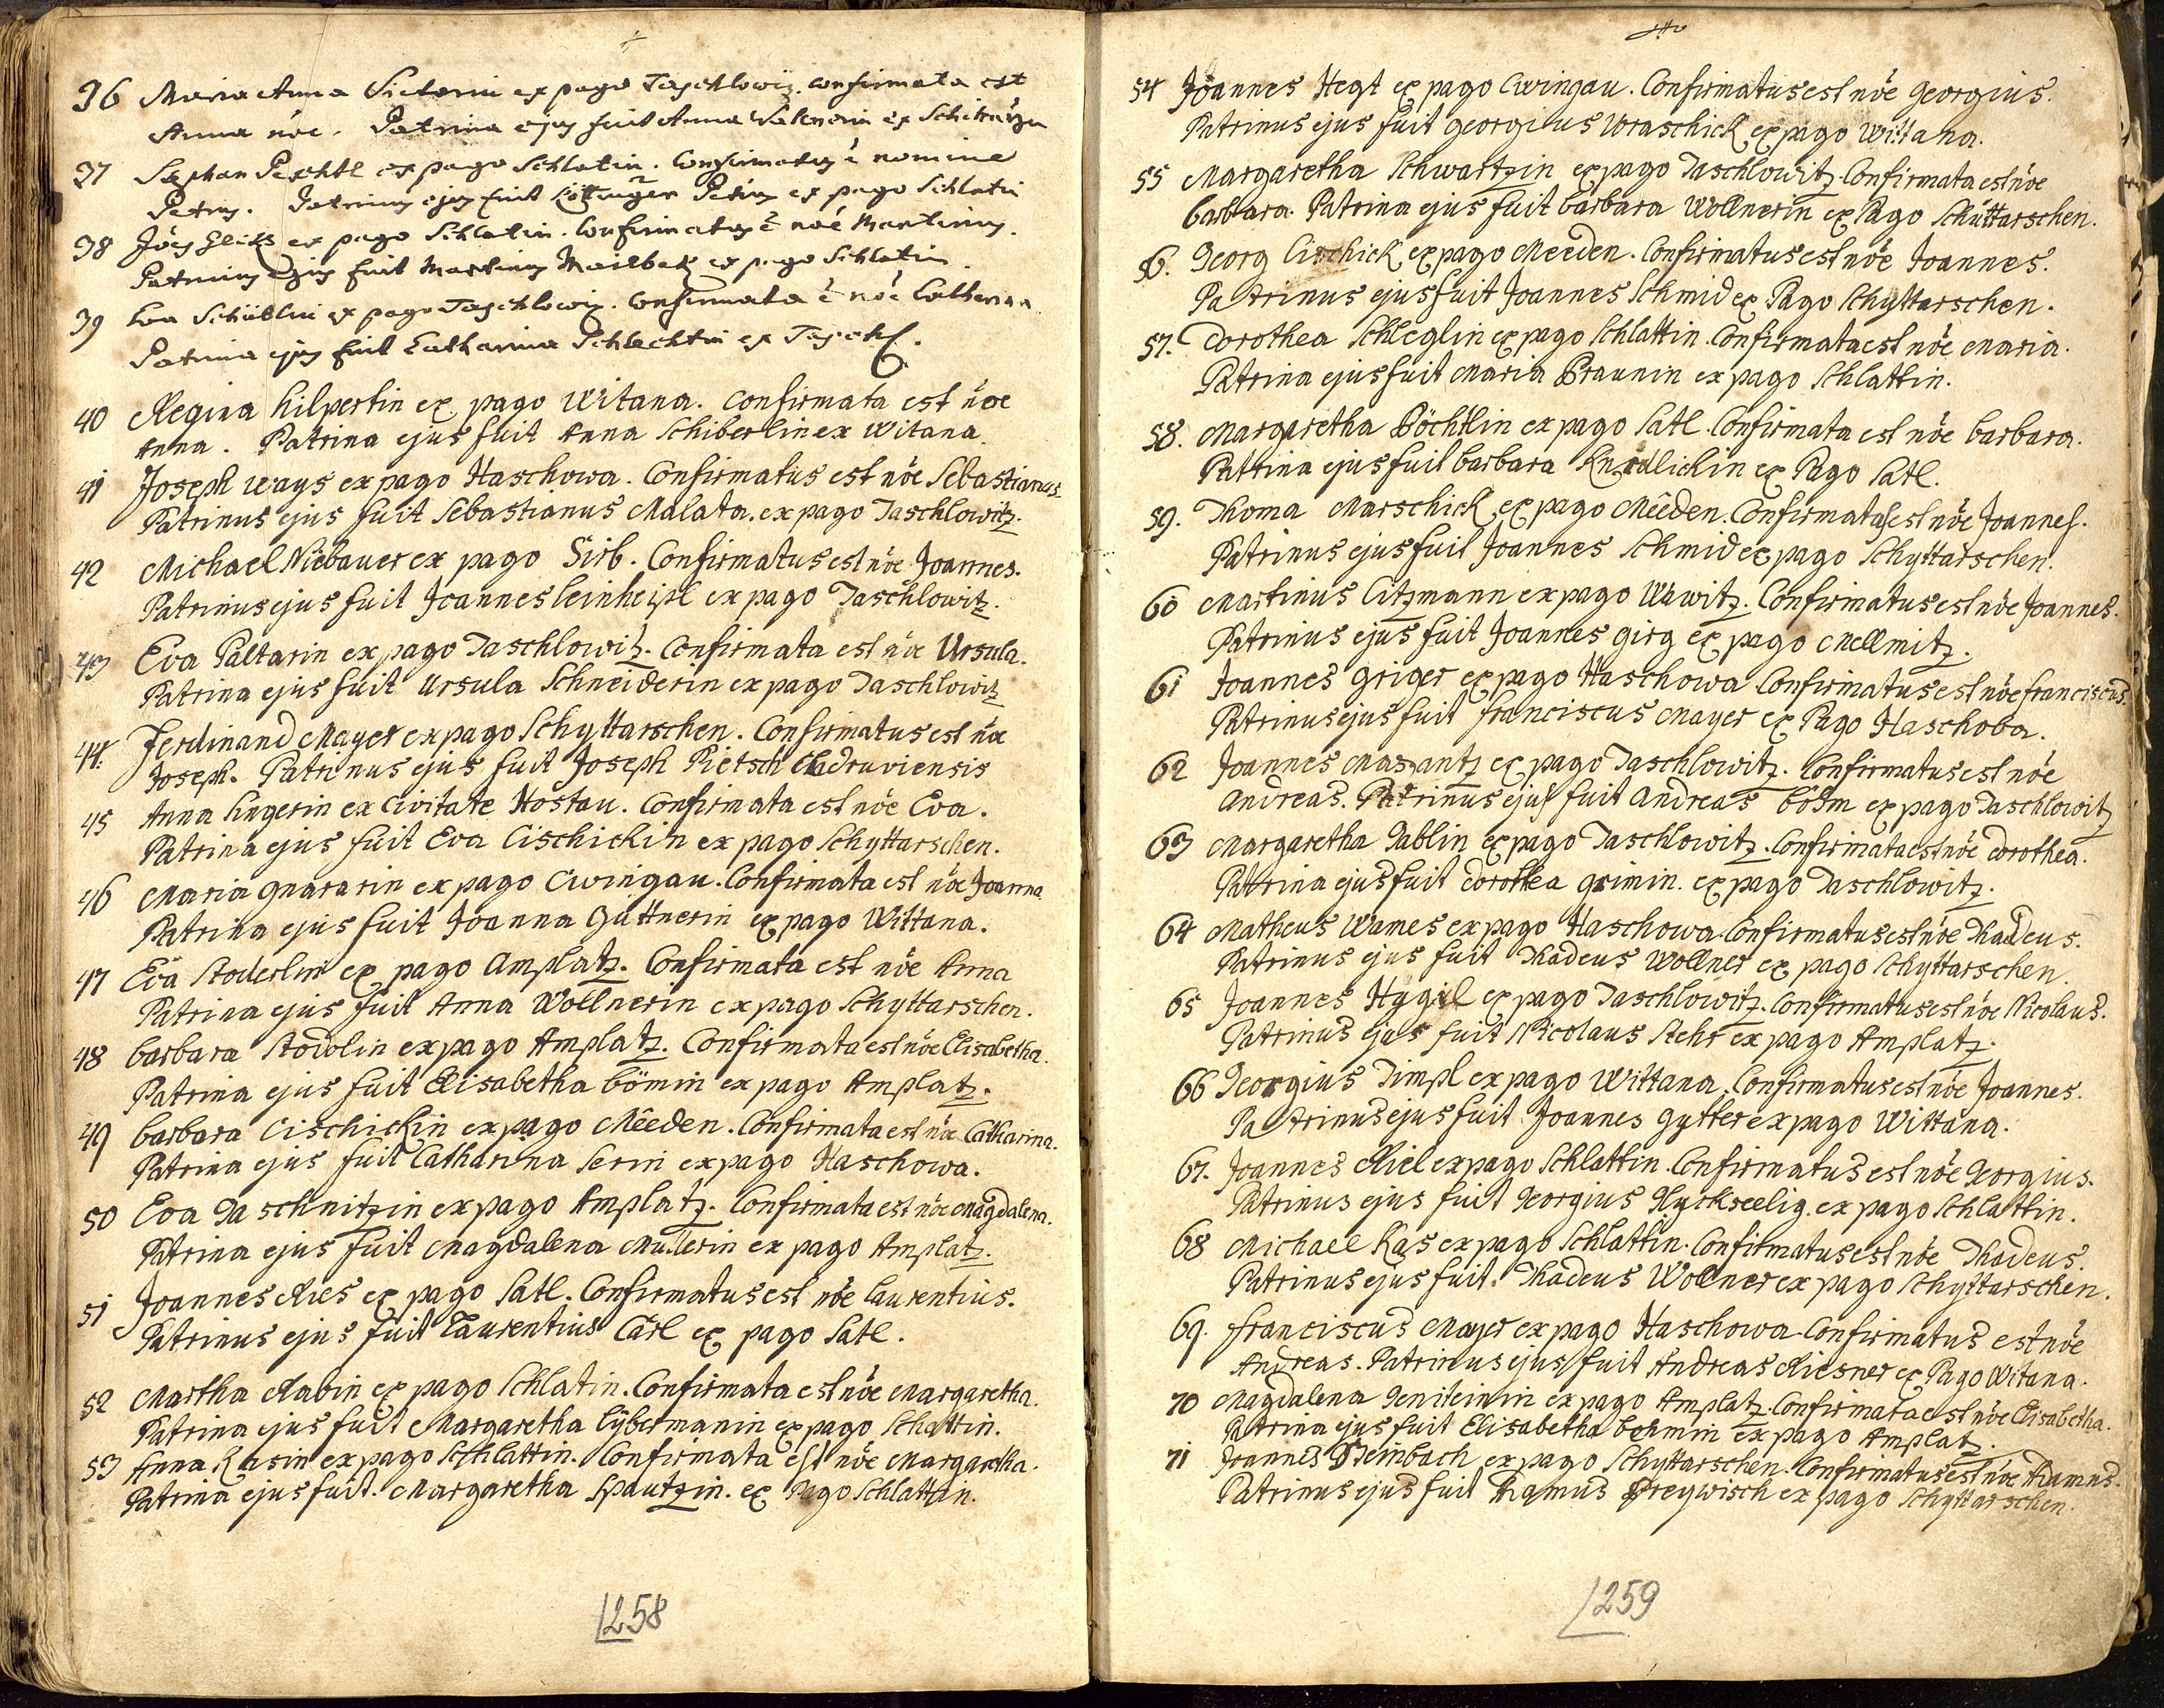 36 Maria Anna Victorin ex pago Taschlowiz. confirmata est
Anna nōe. Patrina ejus fuit Anna ex
37 Stephan Peschtl ex pago Schlatin. Confirmatus ē nomine
Petrus. Patrinus ejus fuit Petrus ex pago Schlatin
38 Jōes ex pago Schlatin. Confirmatus ē nōē Martinus.
Patrinus ejus fuit Martinus Mailbek ex pago Schlatin.
39 Eva Schüblin ex pago Taschlowiz. Confirmata ē nōē Catherina
Patrina ejus fuit Catharina Schlechtin ex Taschl.
40 Regina Hilpertin ex pago Witana. Confirmata est nōe
Anna. Patrina ejus fuit Anna Schiberlin ex Witana.
41 Joseph Ways ex pago Haschowa. Confirmatus est nōe Sebastianus.
Patrinus ejus fuit Sebastianus Malata. ex pago Taschlowitz.
42 Michael Niebauer ex pago Sirb. Confirmatus est nōe Joannes.
Patrinus ejus fuit Joannes Leinheipl ex pago Taschlowitz.
43 Eva Paltarin ex pago Taschlowitz. Confirmata est nōe Ursula.
Patrina ejus fuit Ursula Schneiderin ex pago Taschlowitz
44. Ferdinand Mayer ex pago Schyttarschen. Confirmatus est nōe
Joseph. Patrinus ejus fuit Joseph Pietsch
45 Anna Ungerin ex Civitate Hostau. Confirmata est nōe Eva.
Patrina ejus fuit Eva Cischickin ex pago Schyttarschen.
46 Maria Gnararin ex pago Cwingau. Confirmata est nōe Joanna.
Patrina ejus fuit Joanna Güttnerin ex pago Wittana.
47 Eva Stoderlin ex pago Amplatz. Confirmata est nōe Anna
Patrina ejus fuit Anna Wollnerin ex pago Schyttarschen.
48 barbara Stodolin ex pago Amplatz. Confirmata est nōe Elisabetha.
Patrina ejus fuit Elisabetha Bömin ex pago Amplatz.
49 barbara Cischickin ex pago Mêeden. Confirmata est nōe Catharina.
Patrina ejus fuit Catharina Serin ex pago Haschowa.
50 Eva Daschnitzin ex pago Amplatz. Confirmata est nōe Magdalena.
Patrina ejus fuit Magdalena Mullerin ex pago Amplatz.
51 Joannes Ries ex pago Satl. Confirmatus est nōe Laurentius.
Patrinus ejus fuit Laurentius Carl ex pago Satl.
52 Martha Rabin ex pago Schlatin. Confirmata est nōe Margaretha.
Patrina ejus fuit Margaretha Lybermanin ex pago Schlattin.
53 Anna Kasin ex pago Schlattin. Confirmata est nōe Margaretha.
Patrina ejus fuit. Margaretha Spautzin. ex Pago Schlattin.
1258
54 Joannes Hegt ex pago Cwingau. Confirmatus est nōe Georgius.
Patrinus ejus fuit Georgius Woraschick ex pago Wittana.
55 Margaretha Schwartzin ex pago Taschlowitz. Confirmata est nōe
barbara. Patrina ejus fuit barbara Wollnerin ex Pago Schüttarschen.
56. Georg Cischick ex pago Meeden. Confirmatus est nōe Joannes.
Patrinus ejus fuit Joannes Schmid ex Pago Schyttarschen.
57. Dorothea Schleglin ex pago Schlattin. Confirmata est nōe Maria.
Patrina ejus fuit Maria Braunin ex pago Schlattin.
58. Margaretha Böchtlin ex pago Satl. Confirmata est nōe barbara.
Patrina ejus fuit barbara Knedlickin ex Pago Satl.
59. Thoma Marschick ex pago Mêeden. Confirmatus est nōe Joannes.
Patrinus ejus fuit Joannes Schmid ex pago Schyttarschen.
60 Martinus Citzmann ex pago Wawitz. Confirmatus est nōe Joannes.
Patrinus ejus fuit Joannes Girg ex pago Mellmitz.
61 Joannes Griger ex pago Haschowa Confirmatus est nōe Franciscus.
Patrinus ejus fuit Franciscus Mayer ex Pago Haschoba.
62 Joannes Maszantz ex pago Taschlowitz. Confirmatus est nōe
Andreas. Patrinus ejus fuit Andreas Böhm ex pago Taschlowitz
63 Margaretha Tablin ex pago Taschlowitz. Confirmata est nōe Dorothea.
Patrina ejus fuit Dorothea Grimin. ex pago Taschlowitz.
64 Matheus Wames ex pago Haschowa. Confirmatus est nōe Thadeus.
Patrinus ejus fuit Thadeus Wollner ex pago Schyttarschen.
65 Joannes Hygil ex pago Taschlowitz. Confirmatus est nōe Nicolaus.
Patrinus ejus fuit Nicolaus Stehr ex pago Amplatz.
66 Georgius Timpl ex pago Wittana. Confirmatus est nōe Joannes.
Patrinus ejus fuit Joannes Gytter ex pago Wittana.
67. Joannes Riel ex pago Schlattin. Confirmatus est nōe Georgius.
Patrinus ejus fuit Georgius Klyckseelig. ex pago Schlattin.
68 Michael Kas ex pago Schlattin. Confirmatus est nōe Thadeus.
Patrinus ejus fuit. Thadeus Wollner ex pago Schyttarschen.
69. Franciscus Mayer ex pago Haschowa. Confirmatus est nōe
Andreas. Patrinus ejus fuit Andreas Riesner ex Pago Witana.
70 Magdalena Geniteinin ex pago Amplatz. Confirmata est nōe Elisabetha.
Patrina ejus fuit Elisabetha Bohmin ex pago Amplatz.
71 Joannes Steinbach ex pago Schyttarschen. Confirmatus est nōe
Patrinus ejus fuit Preywisch ex pago Schyttarschen.
1259